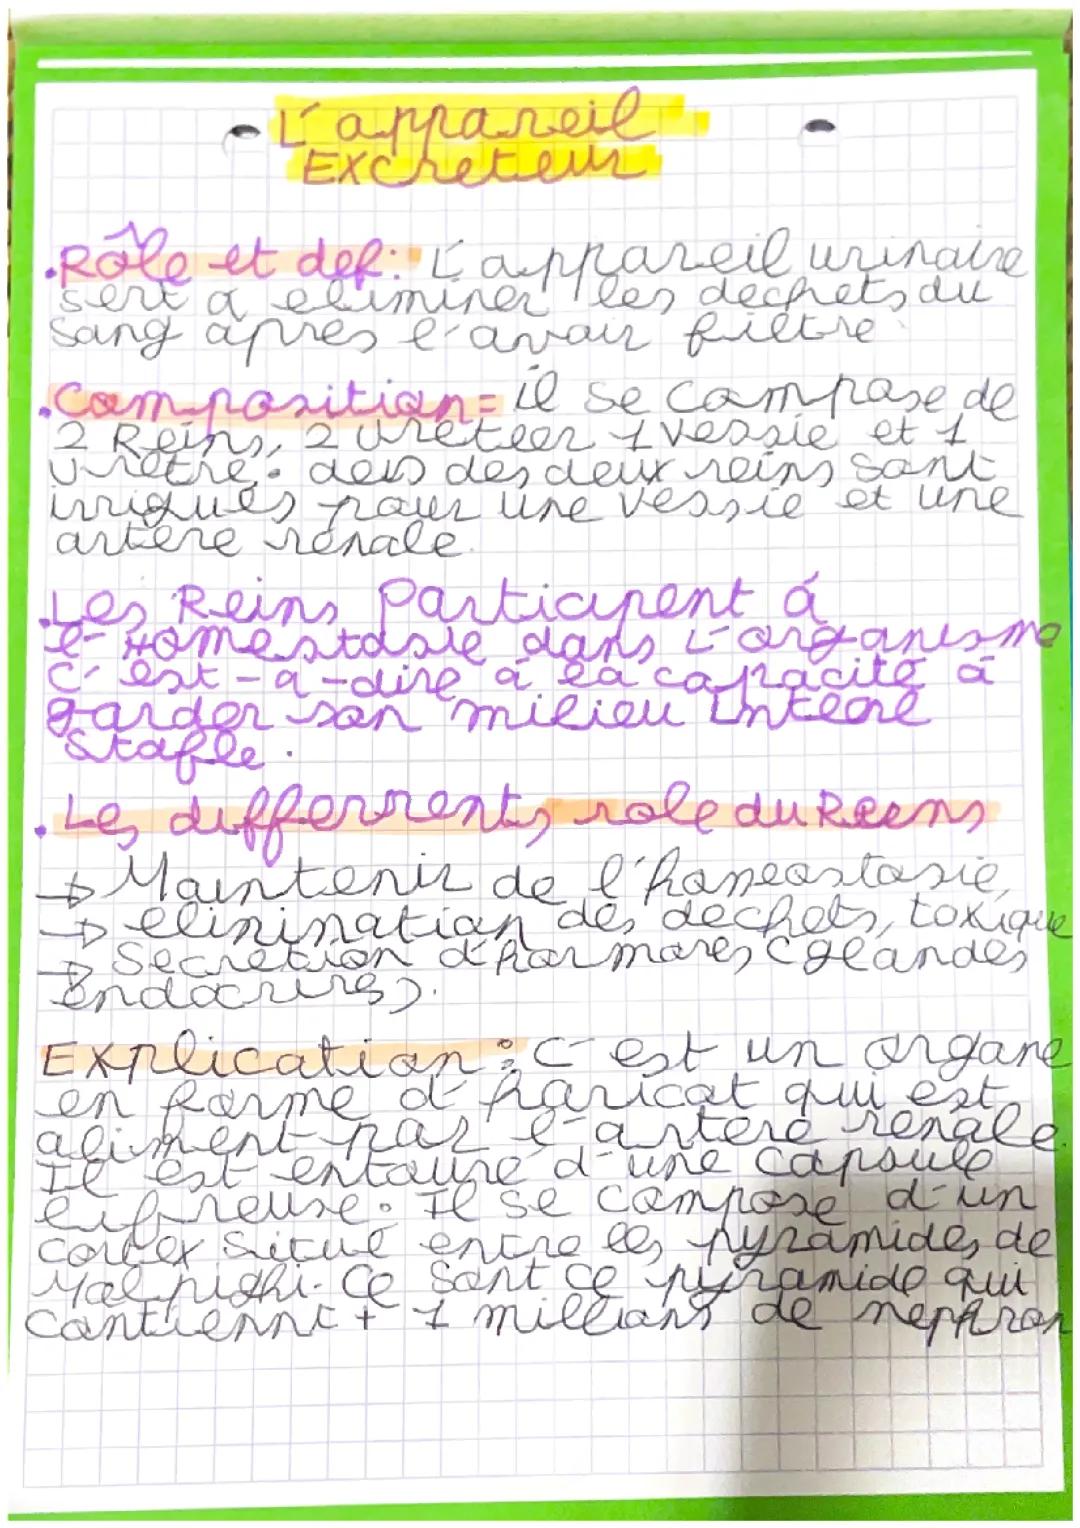 L'appareil
EXcreteur
.Rôle et def: L'appareil urinaire
sert a eliminer les dechets du
sang apres l'avoir filtre
.Composition= il se compose de
2 Reins, 2 ureteer 1 vessie et 1
uretre. des deux reins sont
irrigués pour une vessie et une
artere renale.
.Les Reins Participent á
l'-Homestasie dans L'organisme
C'est-a-dire à la capacité à
garder son milieu interne
stable.
. Les differrents role du Reens
→ Maintenir de l'homeostasie,
→ elinination des dechets, toxique
→ Secretion d'hormones (glandes
endocrines).
EXplication : C'est un organe
en forme d'haricot qui est
aliment par l'artere renale.
Il est entoure d'une capsule
fibreuse. Il se compose d'un
cortex situé entre les pyramides de
Malpighi. Ce sont ce pyramide qui
contiennt + 1 millions de nephron